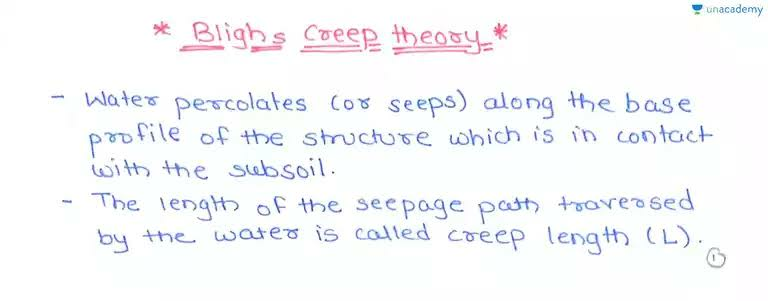 unacademy
* Blighs Creep theory *
- Water percolates (or seeps) along the base
profile of the structure which is in contact
with the subsoil.
- The length of the seepage path traversed
by the water is called creep length (L).
1